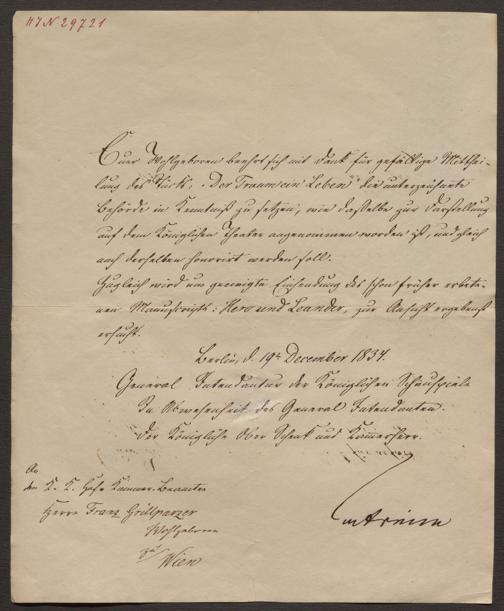 HIN 29721
Euer Wohlgeboren beehrt sich mit Dank für gefällige Mitthei-
lung des Stücks: „Der Traum ein Leben" die unterzeichnete
Behörde in Kenntniß zu setzen, wie dasselbe zur Darstellung
auf dem Königlichen Theater angenommen worden ist, und gleich
nach derselben honorirt werden soll.
Zugleich wird um geneigte Einsendung des schon früher erbete-
nen Manuscripts: Hero und Leander, zur Ansicht ergebenst
ersucht.
Berlin, d. 19t December 1834.
General Intendantur der Königlichen Schauspiele
In Abwesenheit des General Intendanten.
Der Königliche Ober Schenk und Kammerherr.
v Arnim
An
den K. K. Hof Kammer-Beamten
Herrn Franz Grillparzer
Wohlgeboren
zu
Wien